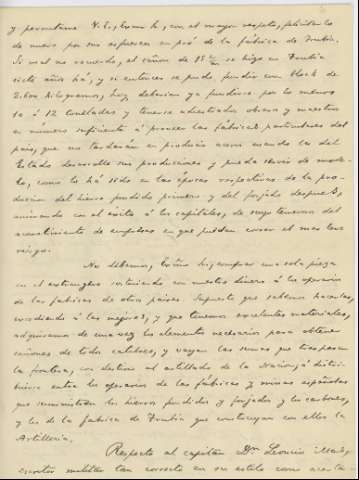 y permítame V. E. llame le, con el mayor respeto, felicitarle
de nuevo por sus esfuerzos en pró de la fábrica de Trubia.
Si mal no recuerdo, el cañon de 15 c/m se hizo en Trubia
siete años há, y si entonces se pudo fundir con block de
kilogramos, hoy debieran ya fundirse por lo menos
10 á 12 toneladas y tenerse adiestrados obreros y maestros
en número suficiente á proveer las fábricas particulares del
pais, que no tardarán en producir acero cuando la del
Estado desarrolle sus producciones y pueda servir de mode-
lo, como lo há sido en las épocas respectivas de la pro-
duccion del hierro fundido primero y del forjado despues,
animando con el éxito á los capitales, de suyo temerosos del
acometimiento de empresas en que puedan correr el mas leve
riesgo.
No debemos, comprar una sola pieza
en el extrangero sosteniendo con nuestro dinero á los operarios
de las fábricas de otros paises. Supuesto que sabemos hacerlas,
á las mejores, y que tenemos excelentes materiales,
adquiramos de una vez los elementos necesarios para obtener
cañones de todos calibres, y vayan las sumas que traspasan
la frontera, con destino al artillado de la Nacion, á distri-
buirse entre los operarios de las fábricas y minas españolas
que suministren los hierros fundidos y forjados y los carbones,
y los de la fábrica de Trubia que construyan con ellos la
Artillería.
Respecto al capitán Dn Leoncio
escritor militar tan correcto en su estilo como